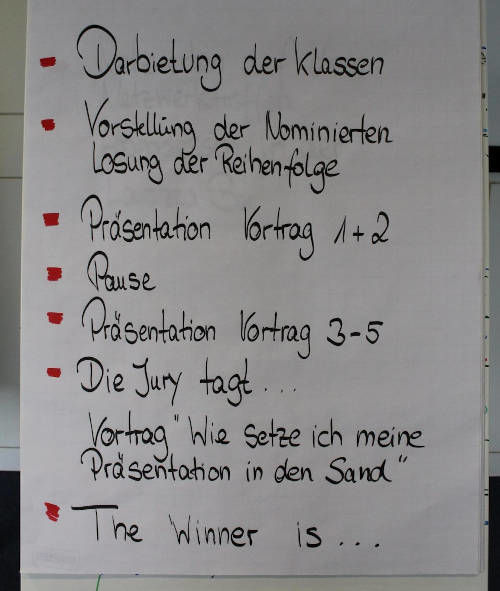 - Darbietung der Klassen
- Vorstellung der Nominierten
Losung der Reihenfolge
- Präsentation Vortrag 1+2
- Pause
- Präsentation Vortrag 3-5
- Die Jury tagt...
Vortrag "Wie setze ich meine
Präsentation in den Sand"
- The Winner is...